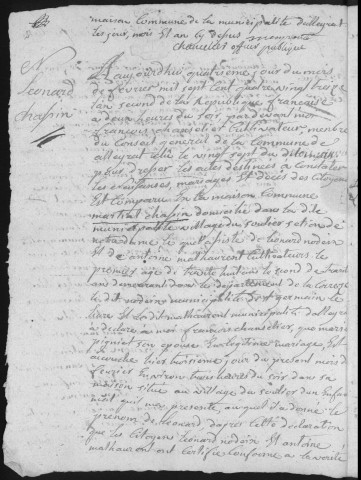 maison Commune de la municipalité dalleyrat
Les jour, mois Et an cy desus
officier publique
N
Leonard
chassin
aujourdhui quatrieme jour du mois
de fevrier mil sept cent quatre vingt treize
lan second de la Republique française
a deux heures du soir pardevant moi
françois Cultivateur, membre
du Conseil general de la Commune de
alleyrat élu le vingt sept du
pour dresser les actes destinés a Constater
les naissances mariages Et décès des Citoyens
Est comparu En la maison commune
chassin domicilié dans la dite
municipalité village du section de
assisté de leonard nadoin
Et dantoine mathaurent Cultivateurs, le
premier agé de trente huit ans le second de trente
ans demeurant dans le departement de la Correze
le dit nadoin municipalité de Port germain le
Et ledit mathaurent municipalité dalleyrat
a déclaré a moi françois que marie
son épouse En legitime mariage, Est
accouchée hier troisieme jour du present mois de
fevrier Environ trois heures du soir dans sa
maison située au village du d'un Enfant
male qui ma presenté, auquel il a donné le
prenom de leonard, dapres cette déclaration
que les Citoyens leonard nadoin Et antoine
mathaurent ont certifié conforme a la verité